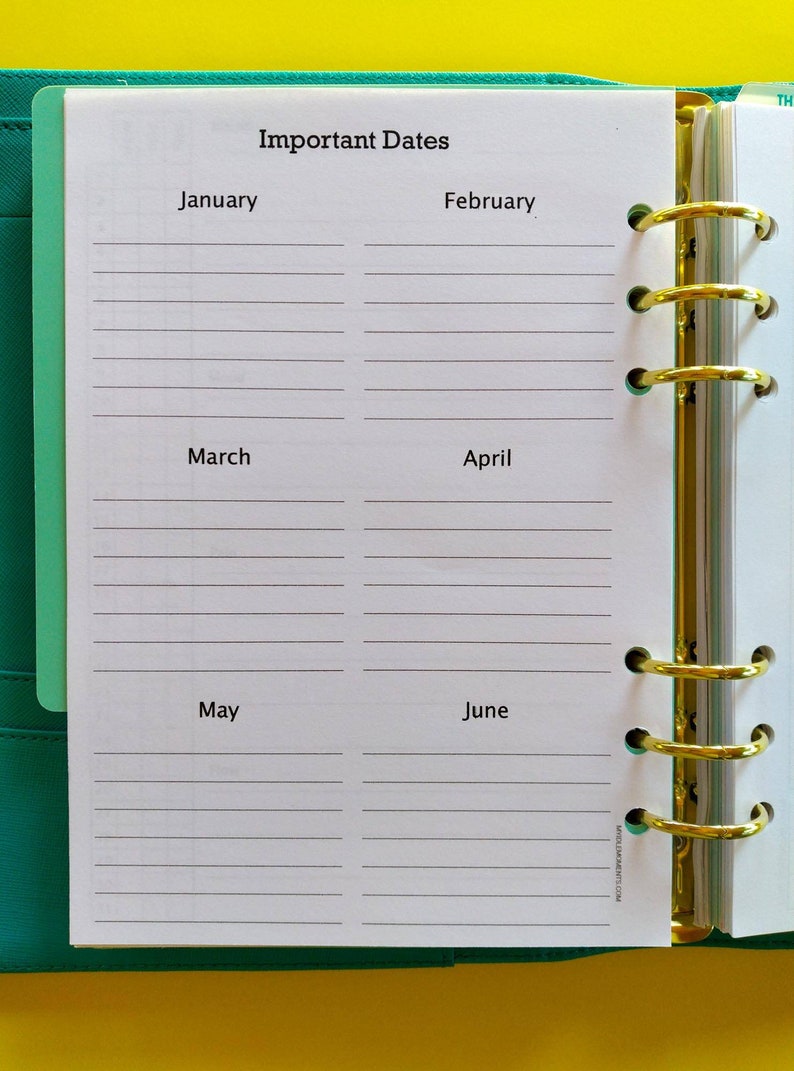 TH
Important Dates
January February
March April
May June
MYIDLEMOMENTS.COM